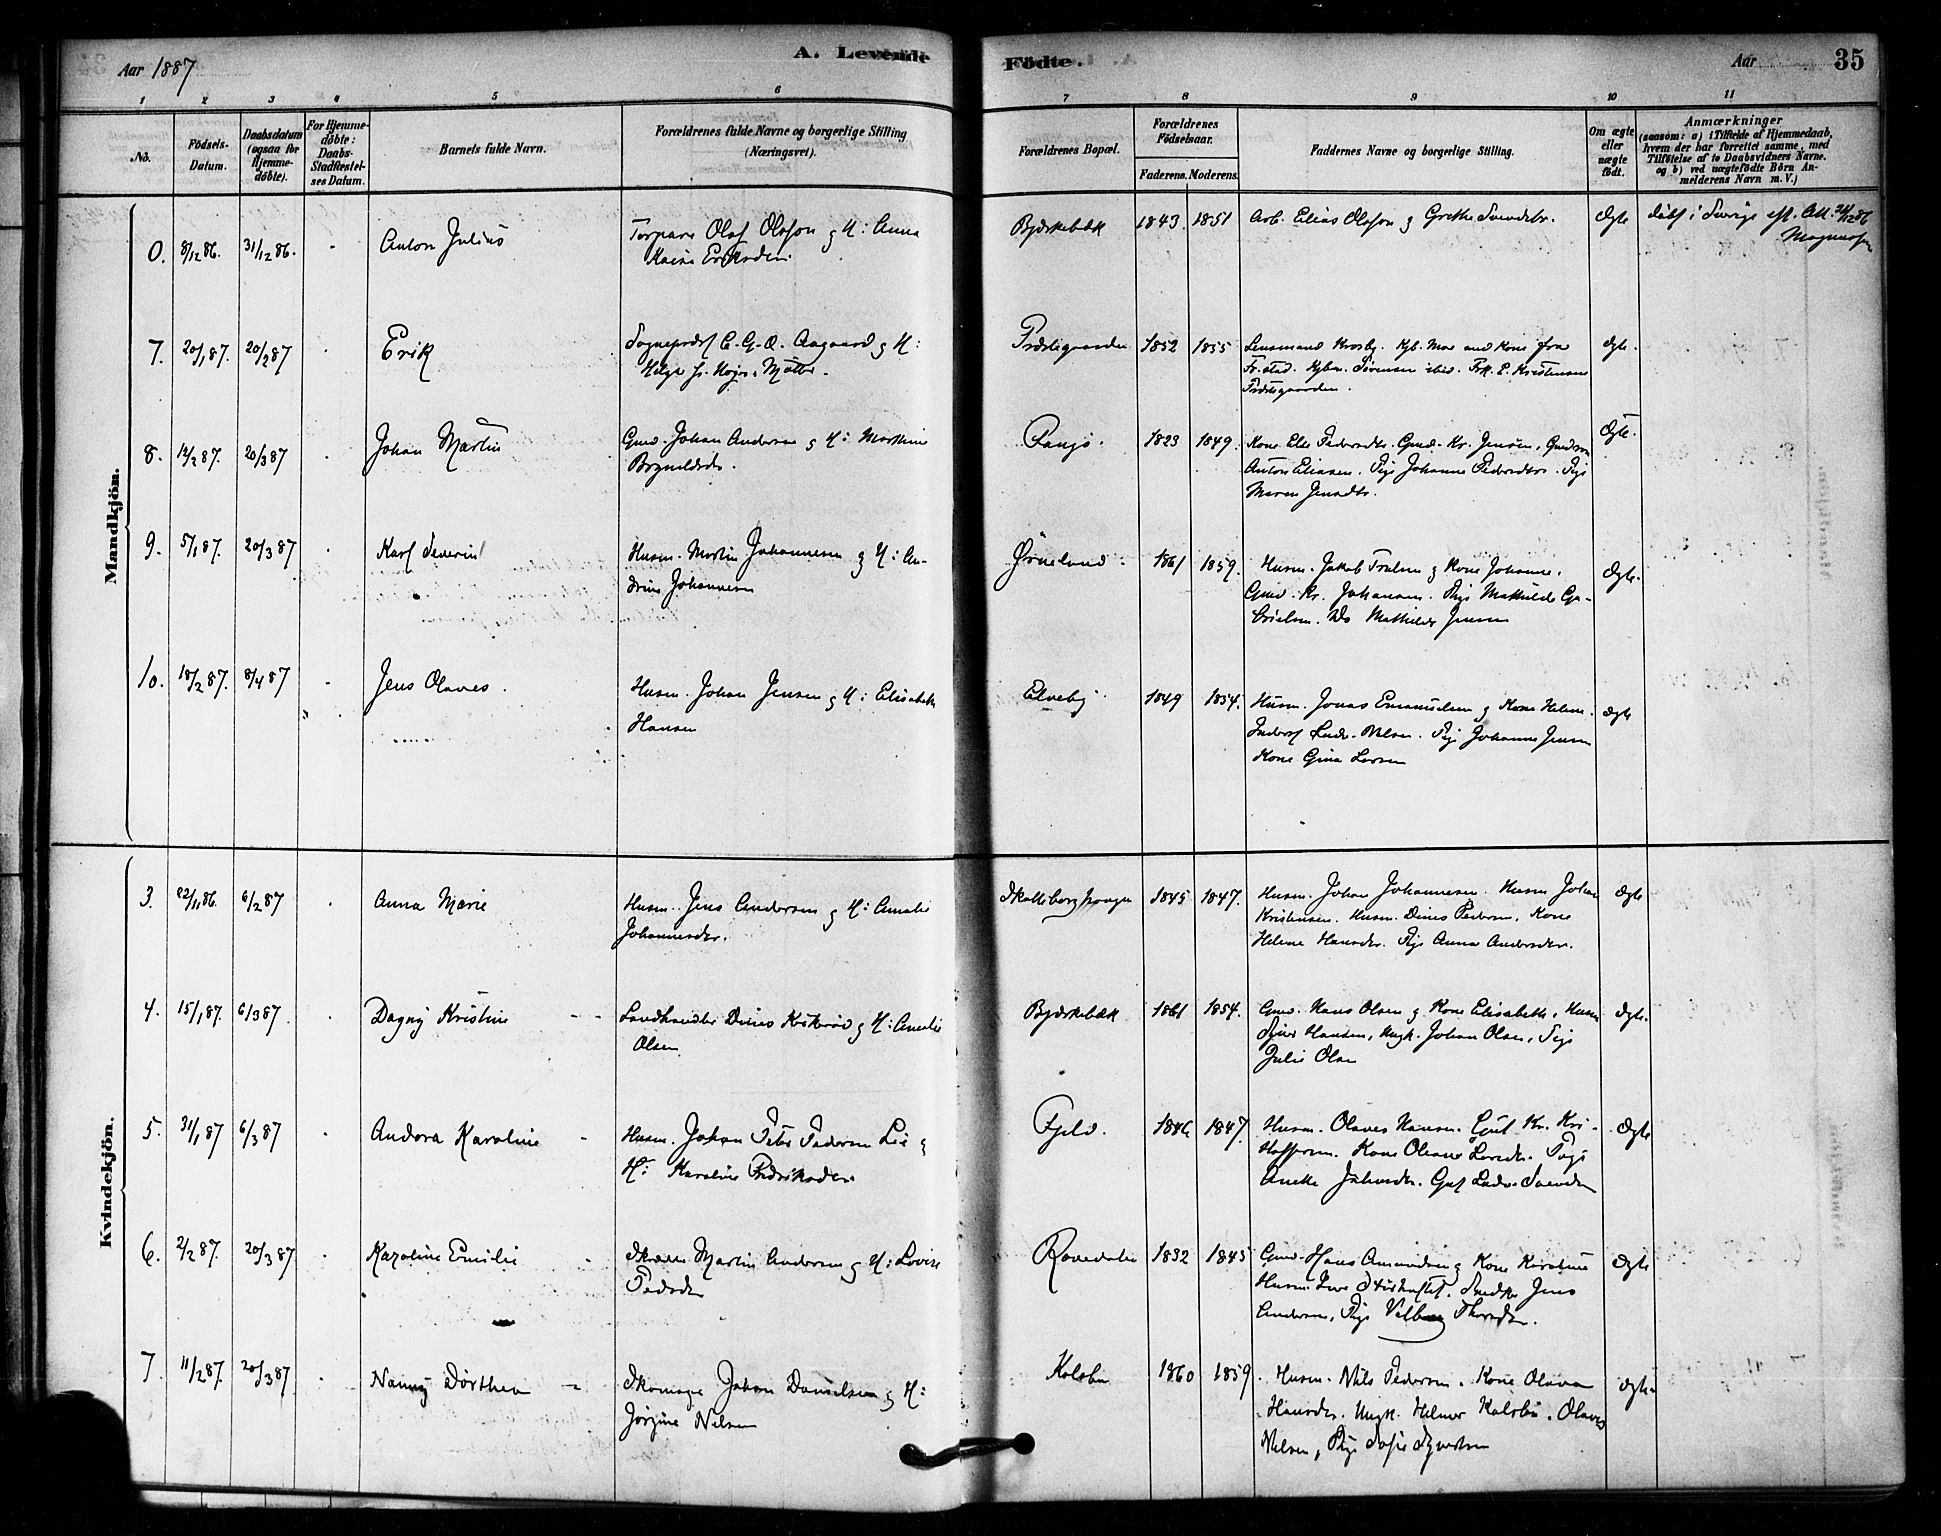 Aar 1887
A. Levende
Födte.
Aar
35
1 2 3 4 5 6 7 8 9 10 11
No.
Födsels-Datum.
Daabsdatum (ogsaa for Hjemme-döbte).
For Hjemme-döbte: Daabs-Stadfestel-ses Datum.
Barnets fulde Navn.
Forældrenes fulde Navne og borgerlige Stilling (Næringsvei).
Forældrenes Bopæl.
Forældrenes Födselsaar.
Faderens. Moderens.
Faddernes Navne og borgerlige Stilling.
Om ægte eller uægte födt.
Anmærkninger
(saasom: a) i Tilfælde af Hjemmedaab,
hvem der har forrettet samme, med
Tilföielse af to Daabsvidners Navne.
og b) ved uægtefödte Börn An-
melderens Navn m. V.)
Mandkjön.
0. 8/12 86. 31/12 86. Anton Julius
Torpare Olof Olofson og H: Anna
Kaisa
Bjærkebæk 1843 1851 Arb. Elias Olofson og Grethe Svendsdtr. Ægte
döbt i Sverige eft. Att. 31/12 86
7. 20/1 87. 20/2 87 Erik
Sognepræst C. G. O. Aagaard og H:
Helga
Præstegaarden 1852 1855 Lensmand Krosby. Kjb. Moe med Kone fra
Fr.stad. Kjbm. Sörensen ibid. Frk. E. Kristensen
Præstegaarden.
Ægte.
8. 12/2 87. 20/3 87 Johan Martin
Gmd. Johan Andersen og H: Marthine
1823 1849. Kone Elle Pedersdtr. Gmd. Kr. Jensen,
Anton Eliasen. Pige Johanne Pedersdtr. Pige
Maren Jensdtr.
Ægte.
9. 5/1 87. 20/3 87 Karl Severin
Husm. Martin Johannesen og H: An-
drine Johannesen
Örnelund. 1861 1859. Husm. Jakob Truelsen og Kone Johanne.
Gmd. Kr. Johansen. Pige Mathilde Ga-
brielsen. Do Mathilde Jensen
Ægte.
10. 18/2 87. 8/4 87 Jens Olaves.
Husm. Johan Jensen og H: Elisabeth
Hansen
Elveby 1849 1854. Husm. Jonas Emanuelsen og Kone Helene.
Inderst Ludv. Nilsen. Pige Johanne Jensen
Kone Gina Larsen
Ægte
Kvindekjön.
3. 22/11 86. 6/2 87 Anna Marie
Husm. Jens Andersen og H: Amalie
Johannesdtr.
1845 1847. Husm. Johan Johannesen. Husm Johan
Kristensen. Husm. Dines Pedersen. Kone
Helene Hansdtr. Pige Anna Andersdtr.
Ægte
4. 15/1 87. 6/3 87 Dagny Kristine
Landhandler Dines Kokeröd og H: Amalie
Olsen.
Bjærkebæk 1861 1854. Gmd. Hans Olsen og Kone Elisabeth. Husm
Hansen, Ungk. Johan Olsen, Pige
Julie Olsen
Ægte.
5. 31/1 87 6/3 87 Andora Karoline
Husm. Johan Peter Pedersen Lie og
H: Karoline Fredriksdtr.
Fjeld. 1846 1847. Husm. Olaves Hansen. Kr. Kri-
stoffersen. Kone Oleane Larsdtr. Pige
Ægte
6. 2/2 87. 20/3 87 Karoline Emilie
Skræder Martin Andersen og H: Lovise
Pedsdtr
1832 1845 Gmd. Hans Amundsen og Kone Karoline
Husm. Snedker Jens
Andersen, Pige
Ægte
7 11/2 87. 20/3 87 Nanny Dorthea
Skomager Johan Danielsen og H:
Jörgine Nilsen
Kolsbu 1860 1859. Husm. Nils Pedersen. Kone Olava
Hansdtr. Ungk. Helmer Kolsbu. Olaves
Nilsen, Pige Sofie
Ægte